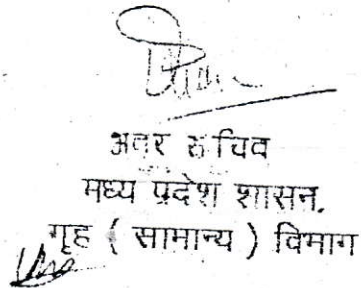 अवर सचिव
मध्य प्रदेश शासन,
गृह ( सामान्य ) विभाग